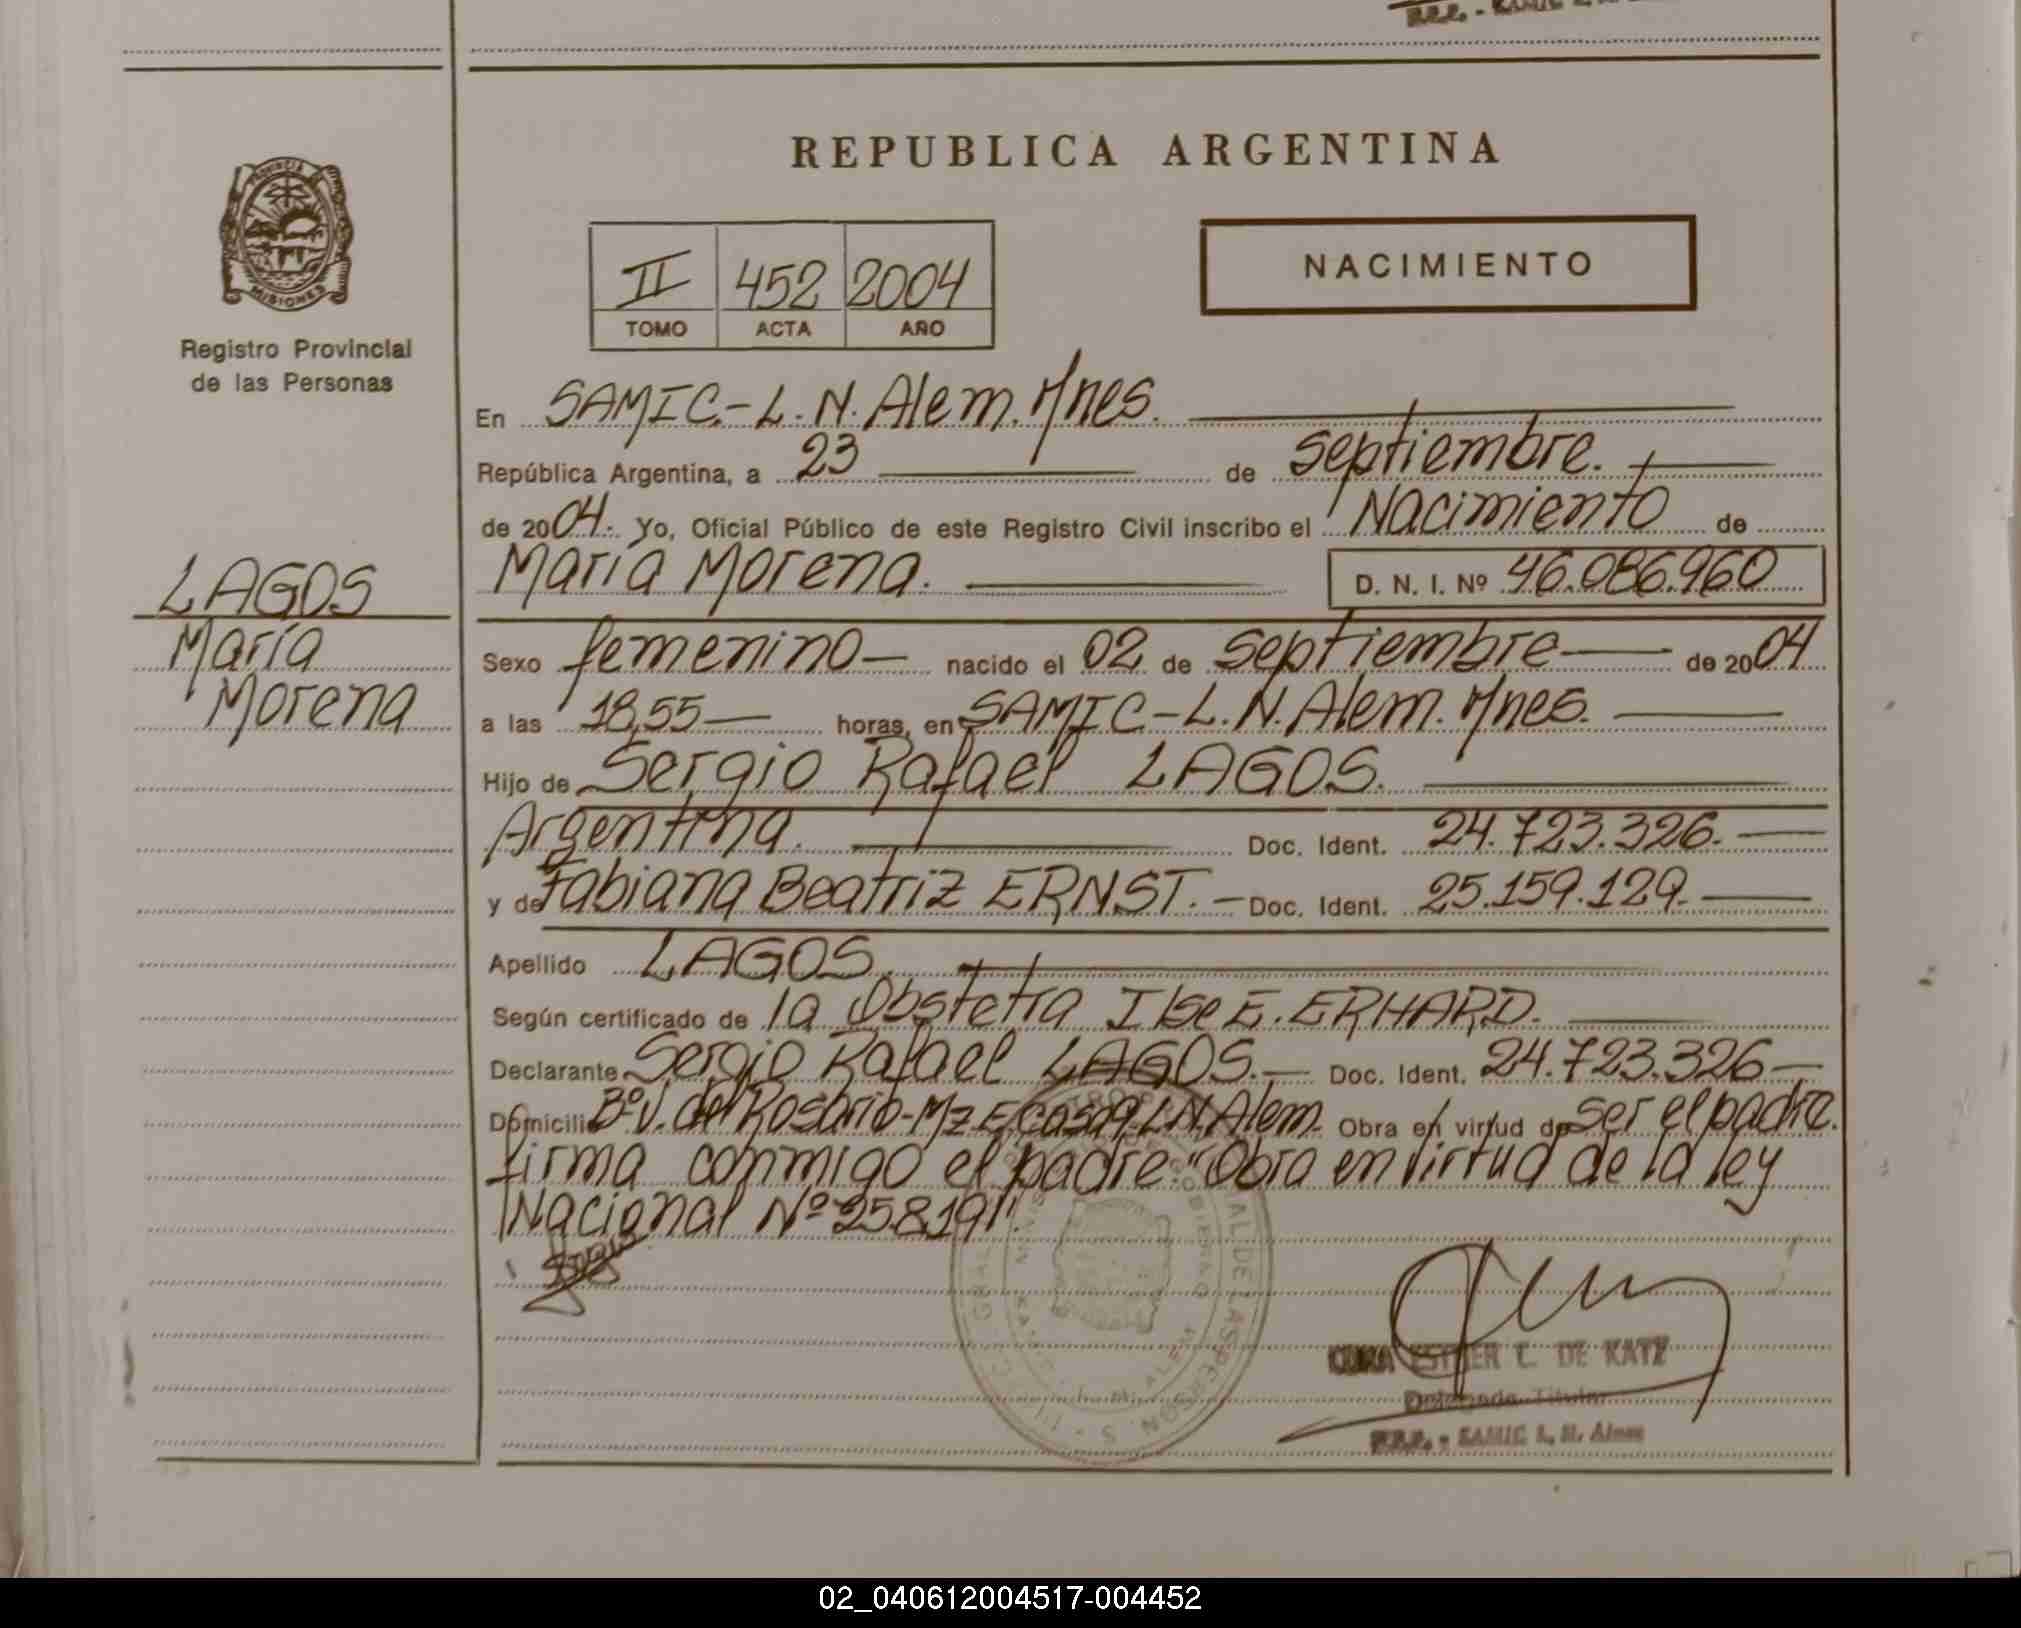 REPUBLICA ARGENTINA
PROVINCIA
MISIONES
Registro Provincial
de las Personas
II 452 2004
TOMO ACTA AÑO
NACIMIENTO
En SAMIC.-L.N.Alem.Mnes.
República Argentina, a 23 de septiembre.
de 2004. Yo, Oficial Público de este Registro Civil inscribo el Nacimiento de
María Morena. D. N. I. Nº 46.086.960
LAGOS
María
Morena
Sexo femenino nacido el 02 de septiembre de 2004
a las 18,55 horas, en SAMIC-L.N.Alem.Mnes.
Hijo de Sergio Rafael LAGOS.
Argentina. Doc. Ident. 24.723.326.
y de Fabiana Beatriz ERNST. Doc. Ident. 25.159.129.
Apellido LAGOS.
Según certificado de la Obstetra Ilse E. ERHARD.
Declarante Sergio Rafael LAGOS. Doc. Ident. 24.723.326
Domicilio Bº V. del Rosario-Mz E casa 9-L.N.Alem. Obra en virtud de ser el padre.
firma conmigo el padre."Obra en virtud de la ley
Nacional Nº 25.819".
ESTHER C. DE KATZ
Delegada Titular
SAMIC L. N. Alem
02_040612004517-004452